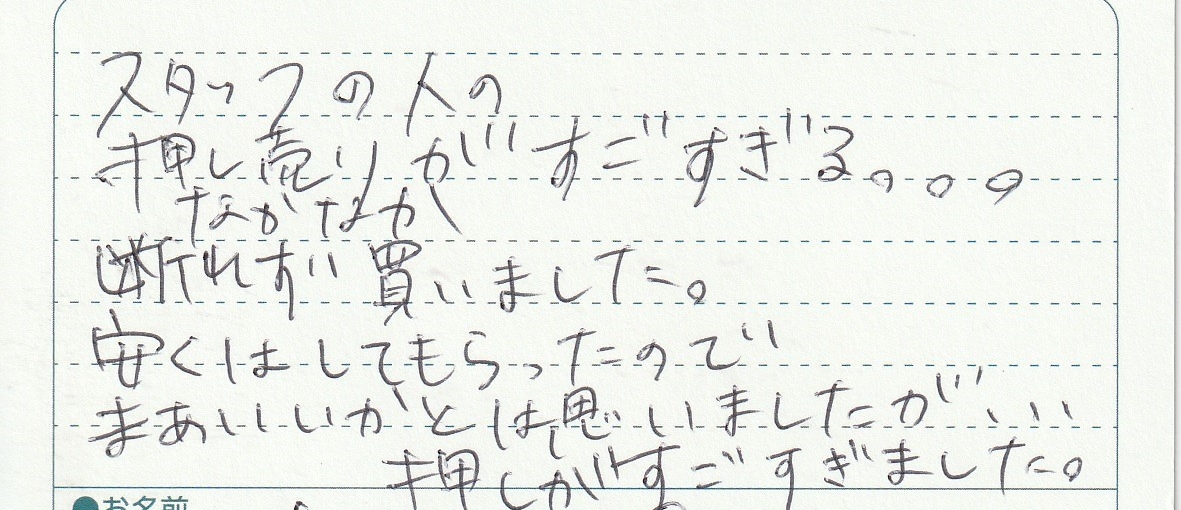 スタッフの人の
押し売りがすごすぎる。。。
なかなか
断れず買いました。
安くはしてもらったので
まあいいかとは思いましたが、、、
押しがすごすぎました。
●お名前